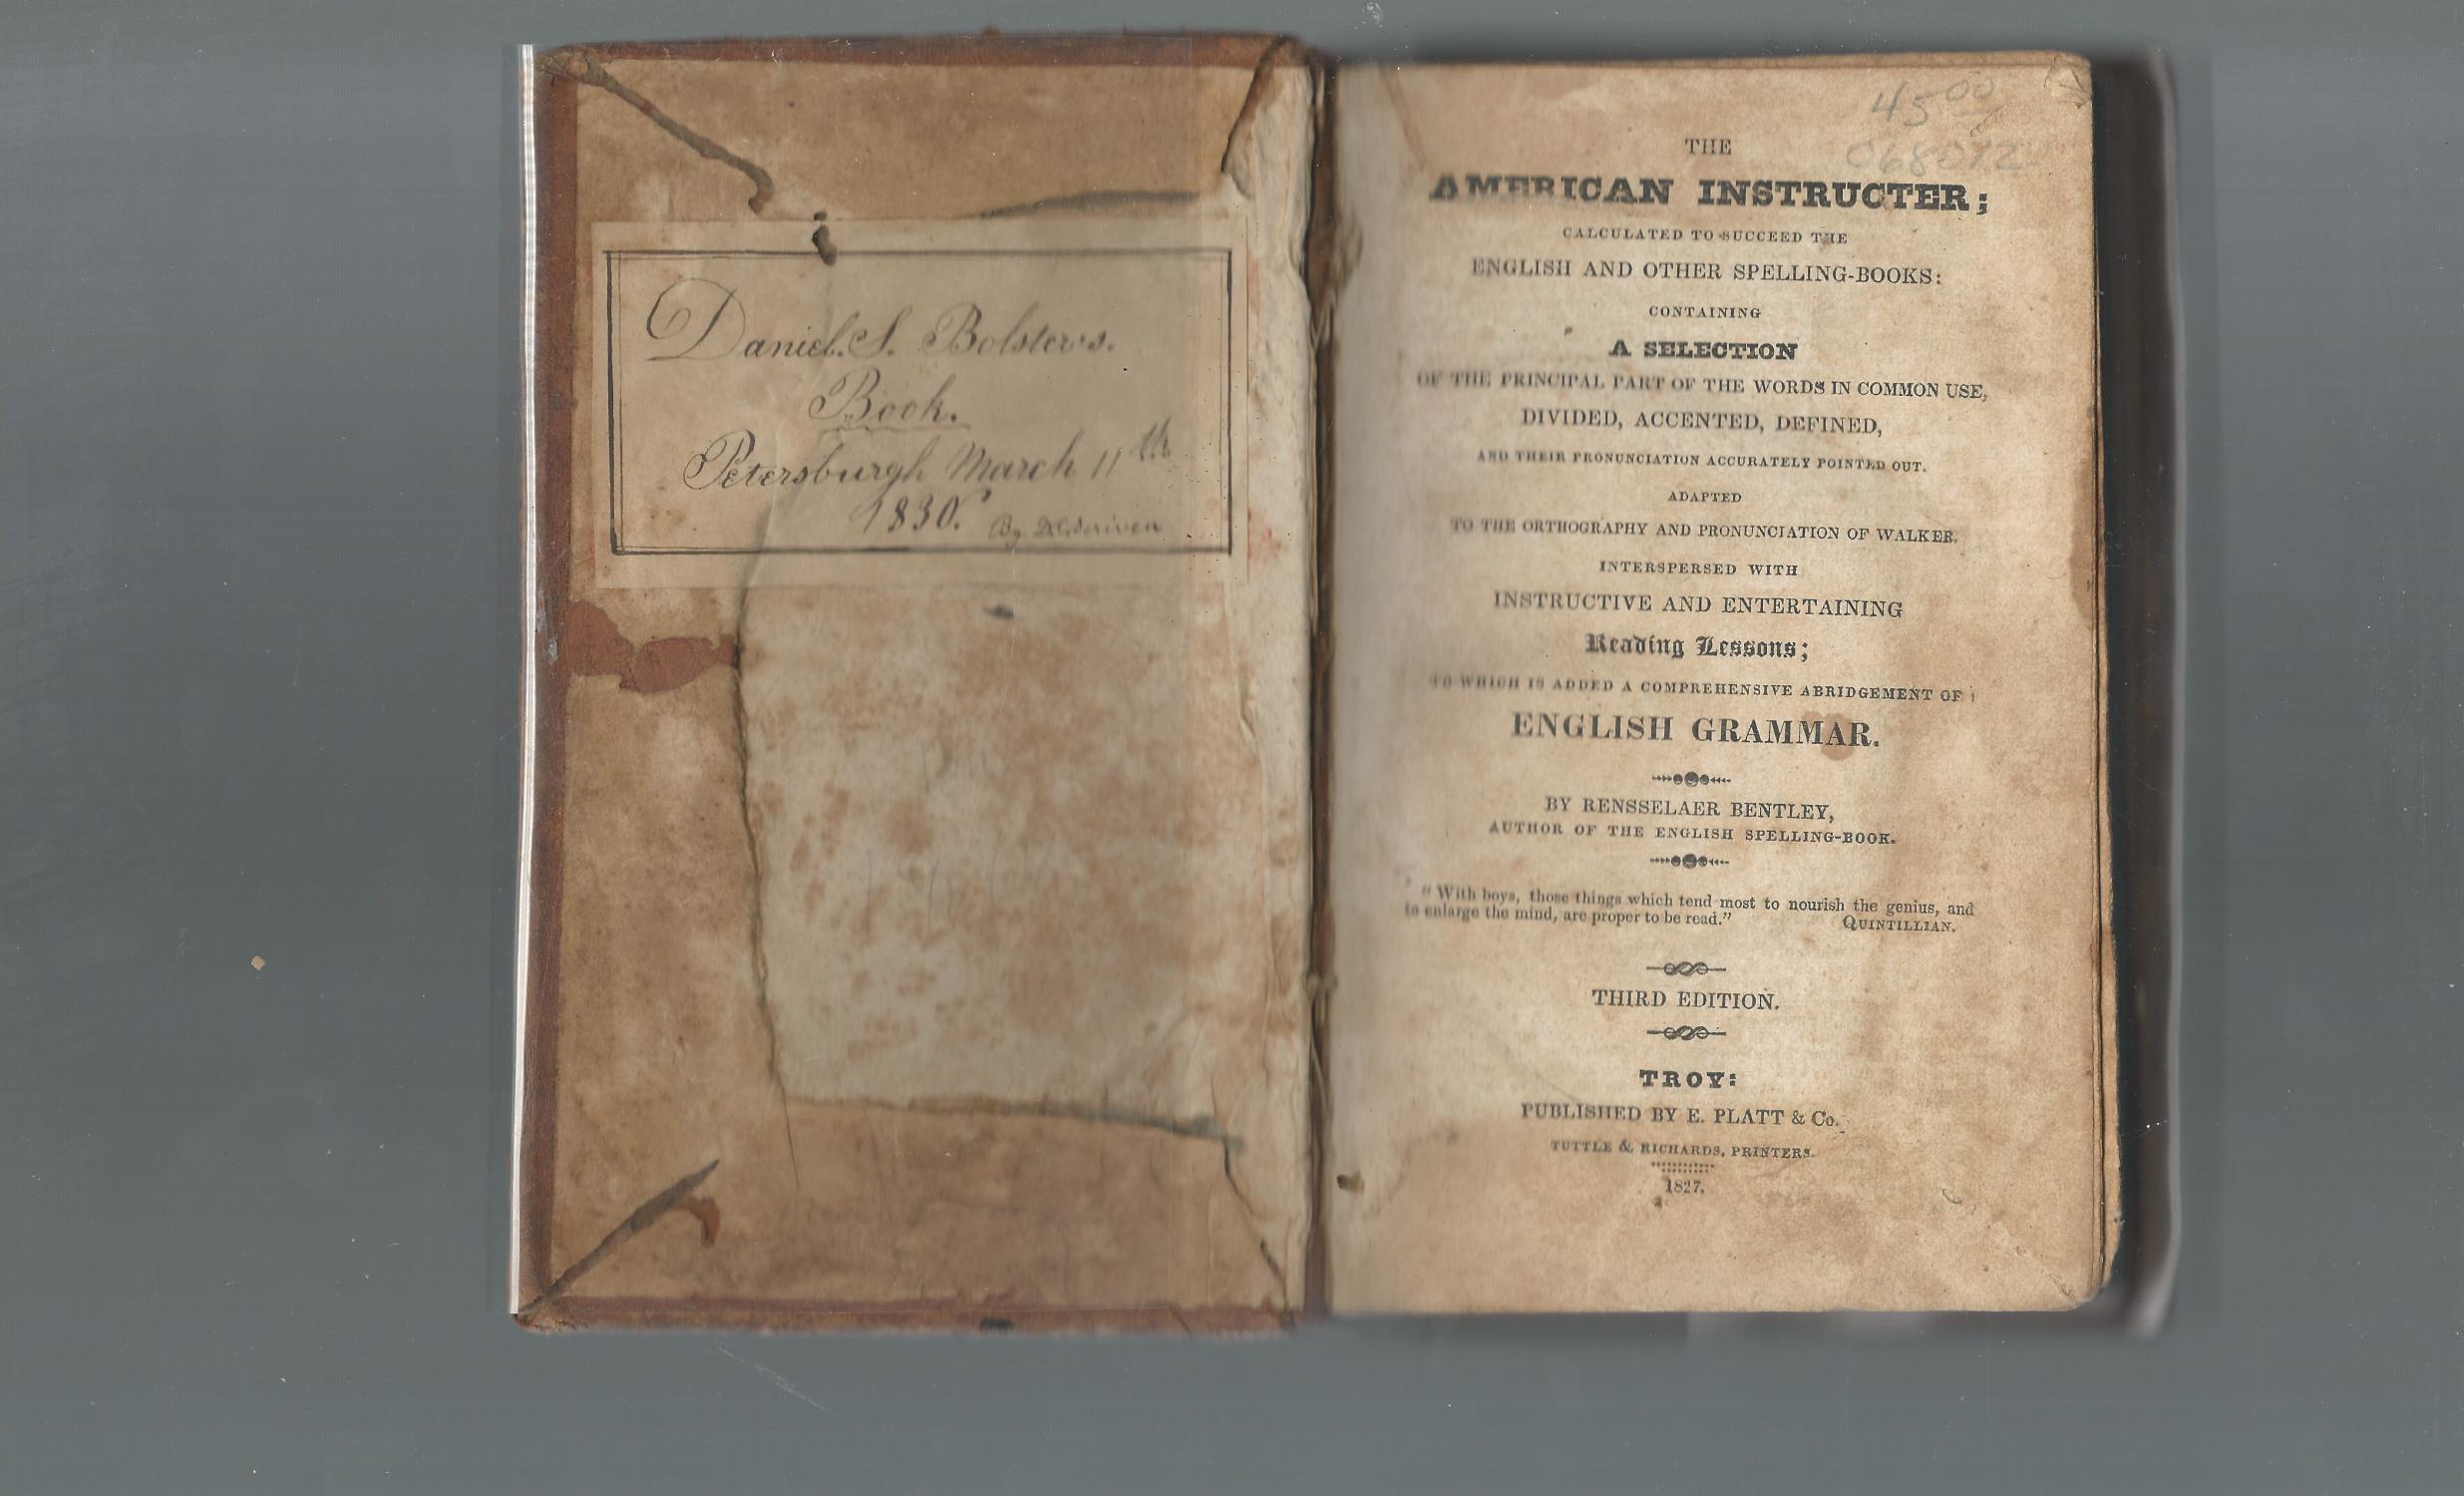 Daniel. S. Bolster's.
Book.
Petersburgh March 11th
1830.
By
45 00
THE
AMERICAN INSTRUCTER;
CALCULATED TO SUCCEED THE
ENGLISH AND OTHER SPELLING-BOOKS:
CONTAINING
A SELECTION
OF THE PRINCIPAL PART OF THE WORDS IN COMMON USE,
DIVIDED, ACCENTED, DEFINED,
AND THEIR PRONUNCIATION ACCURATELY POINTED OUT.
ADAPTED
TO THE ORTHOGRAPHY AND PRONUNCIATION OF WALKER.
INTERSPERSED WITH
INSTRUCTIVE AND ENTERTAINING
Reading Lessons;
TO WHICH IS ADDED A COMPREHENSIVE ABRIDGEMENT OF
ENGLISH GRAMMAR.
BY RENSSELAER BENTLEY,
AUTHOR OF THE ENGLISH SPELLING-BOOK.
"With boys, those things which tend most to nourish the genius, and
to enlarge the mind, are proper to be read." QUINTILLIAN.
THIRD EDITION.
TROY:
PUBLISHED BY E. PLATT & Co.
TUTTLE & RICHARDS, PRINTERS.
1827.